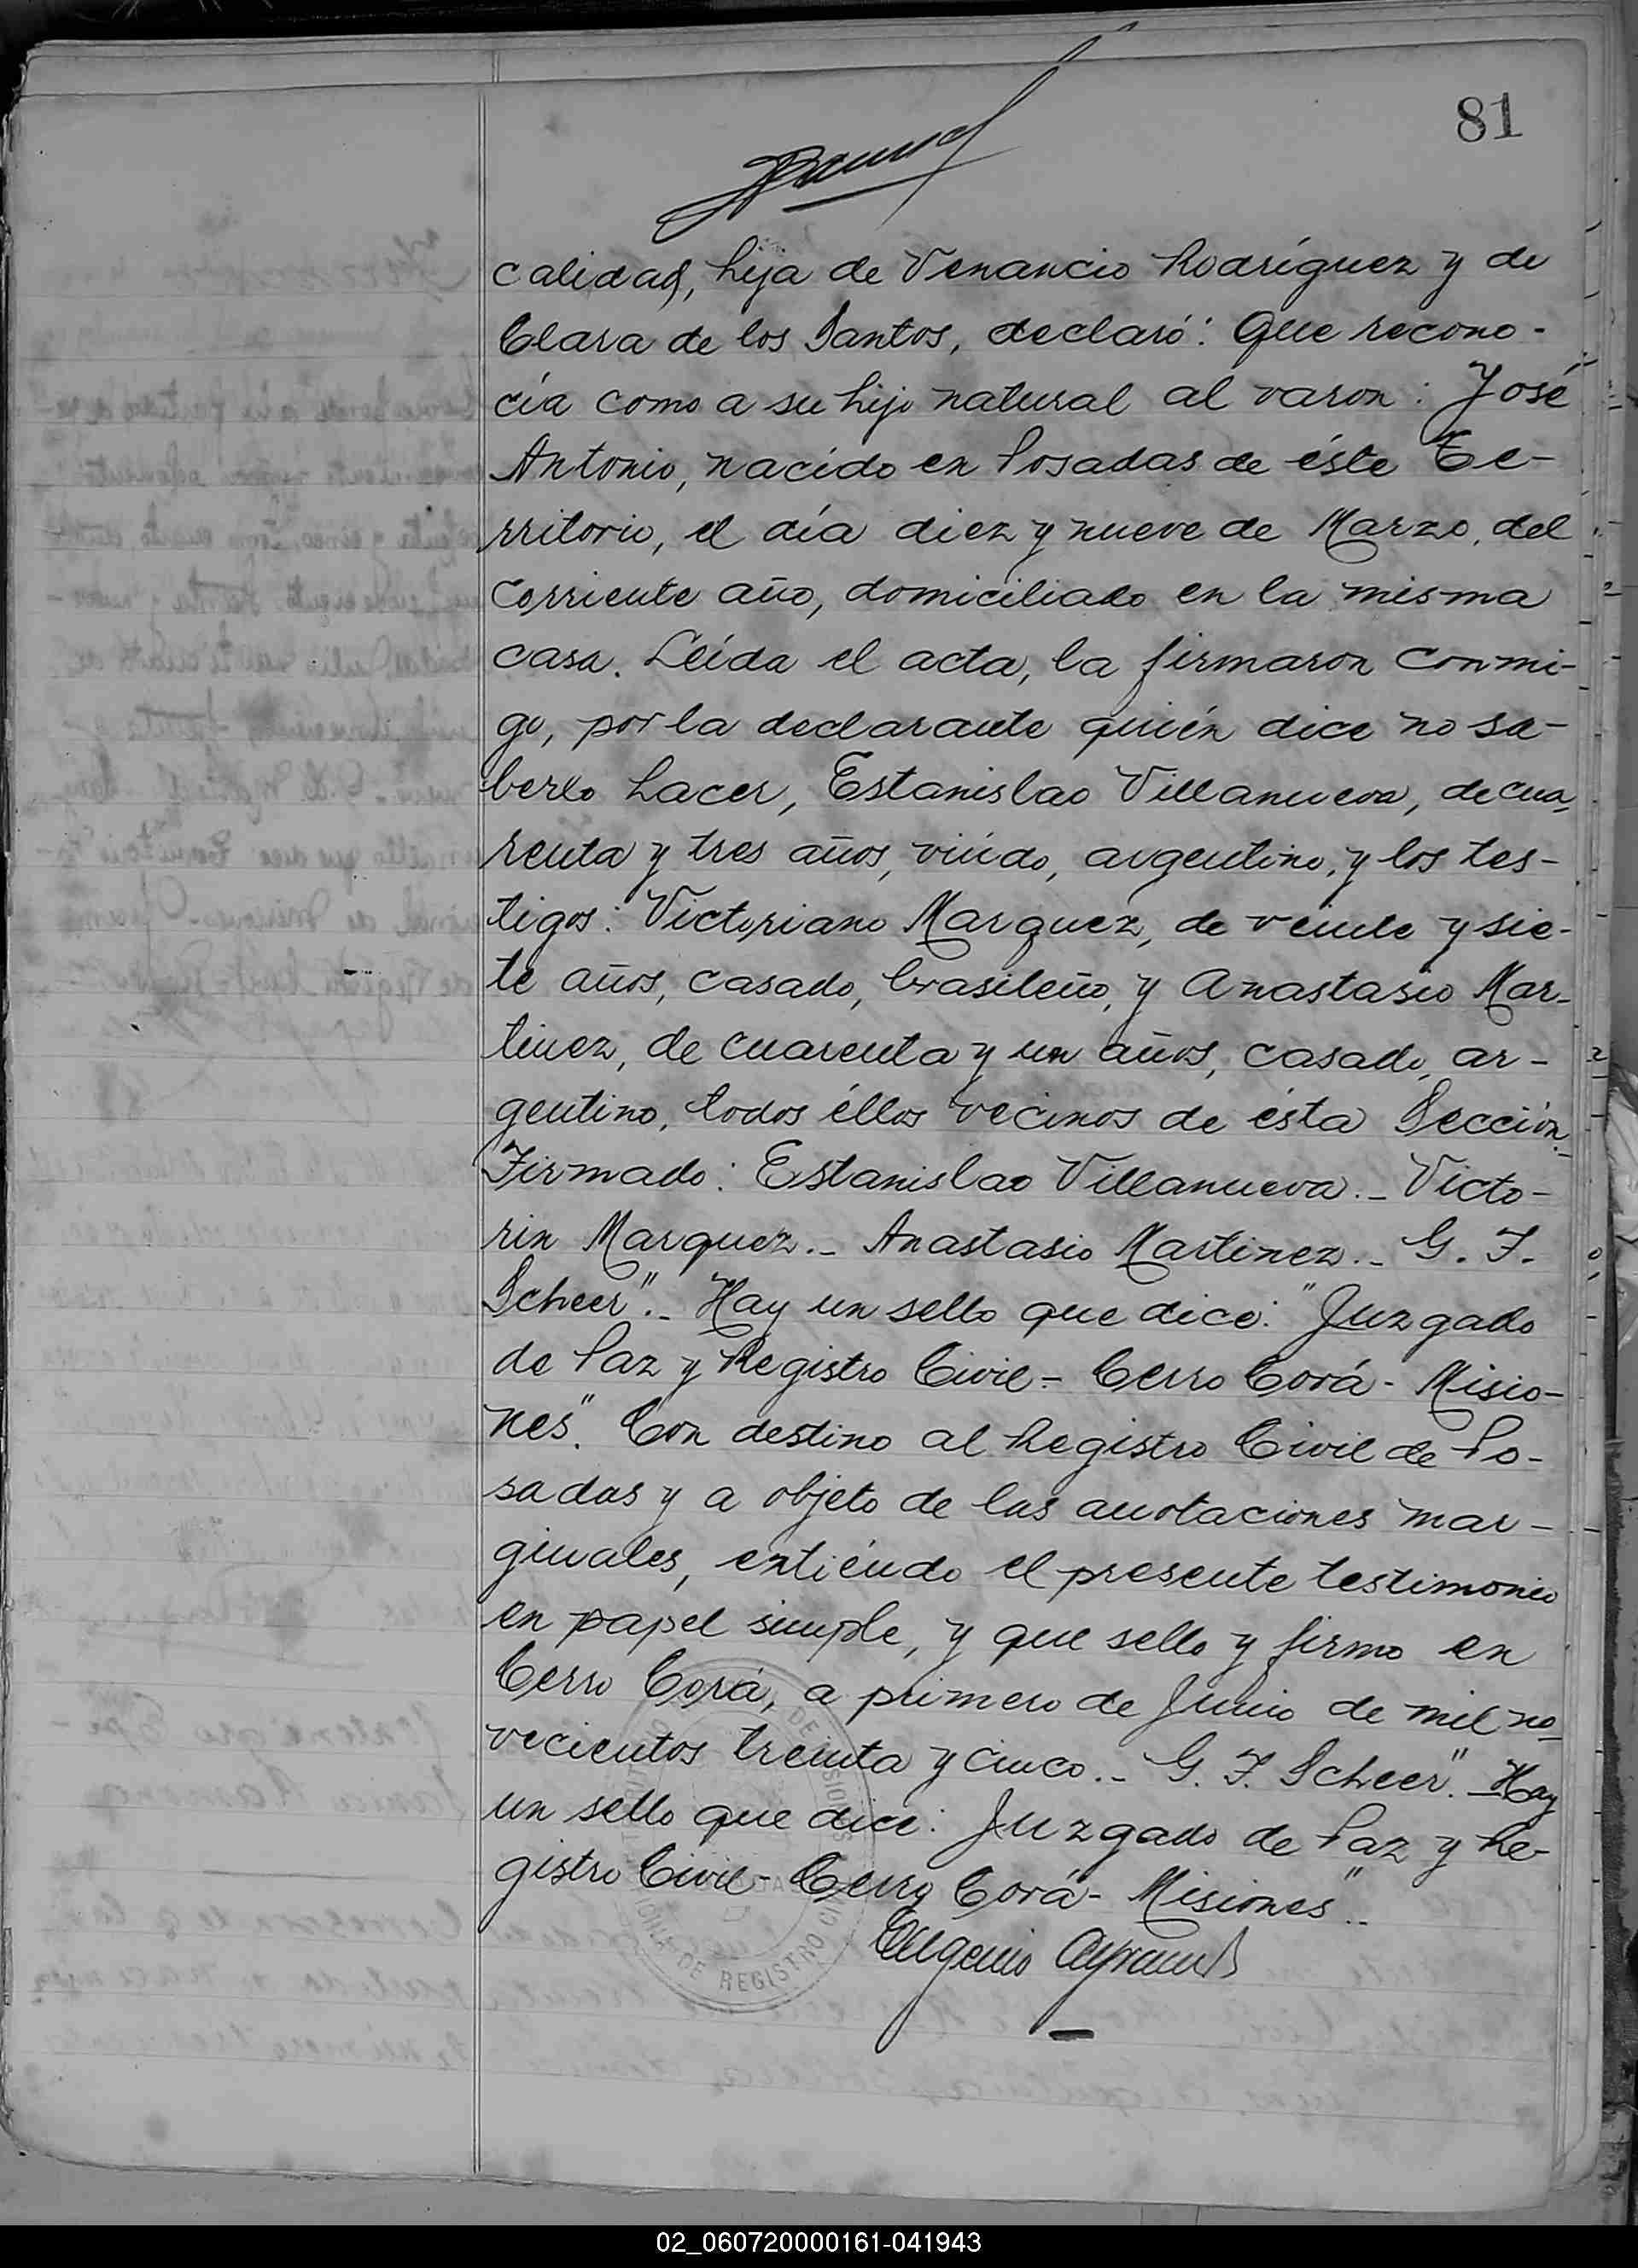 81
calidad, hija de Venancio Rodríguez y de
Clara de los Santos, declaró: Que recono-
cía como a su hijo natural al varon: José
Antonio, nacido en Posadas de éste Te-
rritorio, el día diez y nueve de Marzo, del
corriente año, domiciliado en la misma
casa. Leída el acta, la firmaron conmi-
go, por la declarante quién dice no sa-
berlo hacer, Estanislao Villanueva, de cua-
renta y tres años, viúdo, argentino, y los tes-
tigos: Victoriano Marquez, de veinte y sie-
te años, casado, brasileño, y Anastasio Mar-
tinez, de cuarenta y un años, casado, ar-
gentino, todos éllos vecinos de ésta Sección.-
Firmado: Estanislao Villanueva.- Victo-
rin Marquez.- Anastasio Martinez.- G. F.
Scheer".- Hay un sello que dice: "Juzgado
de Paz y Registro Civil- Cerro Corá- Misio-
nes". Con destino al Registro Civil de Po-
sadas y a objeto de las anotaciones mar-
ginales, extiéndo el presente testimonio
en papel simple, y que sello y firmo en
Cerro Corá, a primero de Junio de mil no-
vecientos treinta y cinco.- G. F. Scheer".- Hay
un sello que dice: Juzgado de Paz y Re-
gistro Civil- Cerro Corá- Misiones"..
Eugenio
DE REGISTRO CIVIL
02_060720000161-041943